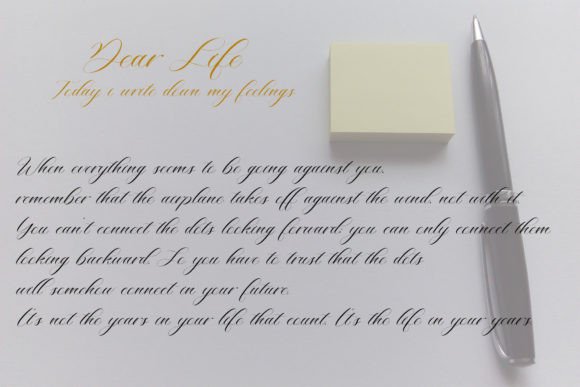 Dear Life
Today i write down my feelings
When everything seems to be going against you,
remember that the airplane takes off against the wind, not with it
You can't connect the dots looking forward; you can only connect them
looking backward. So you have to trust that the dots
will somehow connect in your future.
It's not the years in your life that count. It's the life in your years